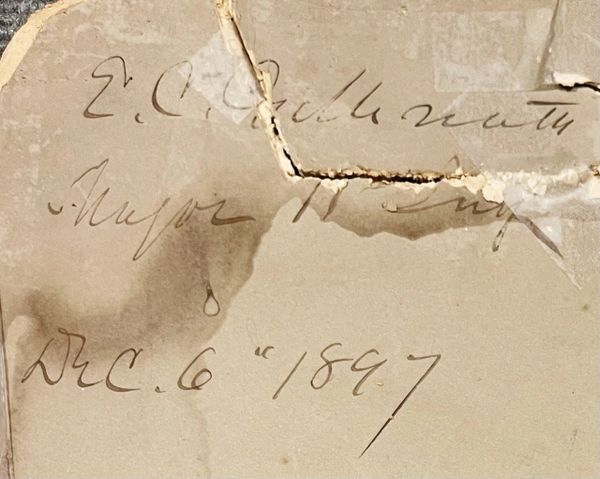 E. C.
Major 11" Inf
Dec. 6" 1897